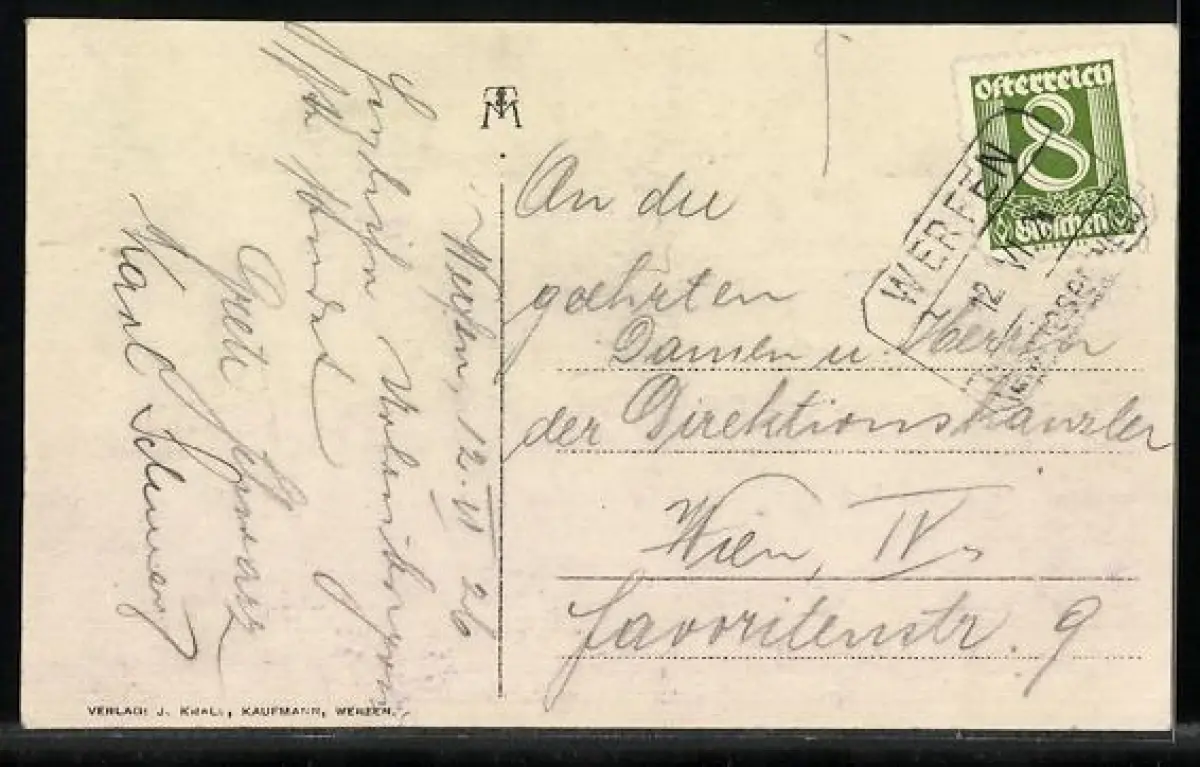 Werfen, 12. VI 26
Herzlichen
Greti Schwarz
Karl Schwarz
VERLAG: J. KRALL, KAUFMANN, WERFEN.
An die
geehrten
Damen u. Herren
der Direktionskanzlei
Wien, IV.
Favoritenstr. 9
Österreich
8
Groschen
WERFEN
12 VI